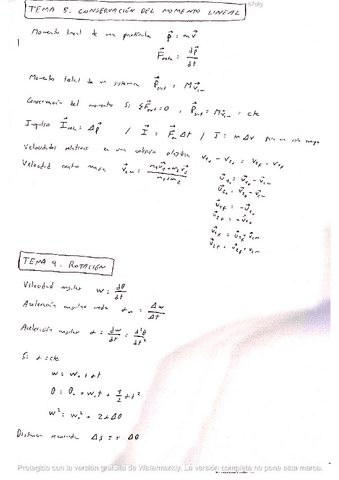 TEMA 8. CONSERVACIÓN DEL MOMENTO LINEAL
Momento lineal de una partícula p⃗ = m v⃗
F⃗neta = dp⃗/dt
Momento total de un sistema P⃗sist = M v⃗cm
Conservación del momento Si ΣF⃗ext = 0, P⃗sist = M v⃗cm = cte
Impulso I⃗neto = Δp⃗ / I⃗ = F⃗m Δt / I = m Δv
Velocidades relativas en una colisión elástica
Velocidad centro masa v⃗cm = (m₁v⃗₁ + m₂v⃗₂)/(m₁ + m₂)
TEMA 9. ROTACIÓN
Velocidad angular w = dθ/dt
Aceleración angular media αm = Δw/ΔT
Aceleración angular α = dw/dt = d²θ/dt²
Si α = cte
w = w₀ + αt
θ = θ₀ + w₀t + 1/2 αt²
w² = w₀² + 2αΔθ
Distancia recorrida Δs = r · Δθ
Protegido con la versión gratuita de Watermarkly. La versión completa no pone esta marca.